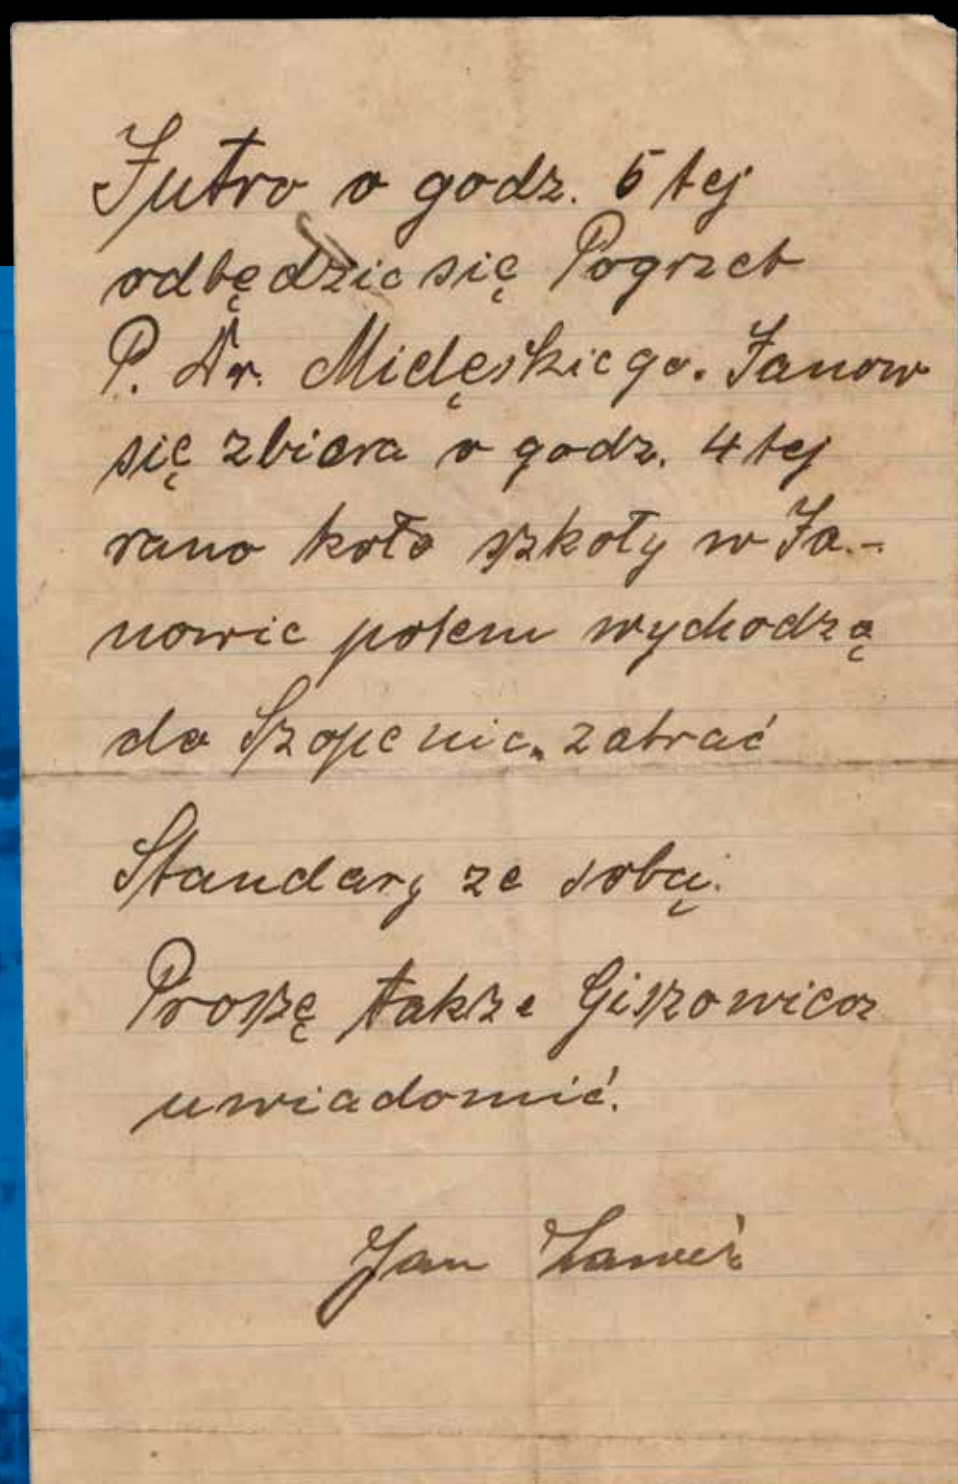 Jutro o godz. 5 tej
odbędzie się Pogrzeb
P. Dr. Mielęskiego. Janow
się zbiera o godz. 4 tej
rano koło szkoły w Ja-
nowie potem wychodzą
do Szopenic. zabrać
Standary ze sobą.
Proszę takze Giszowiec
uwiadomić.
Jan